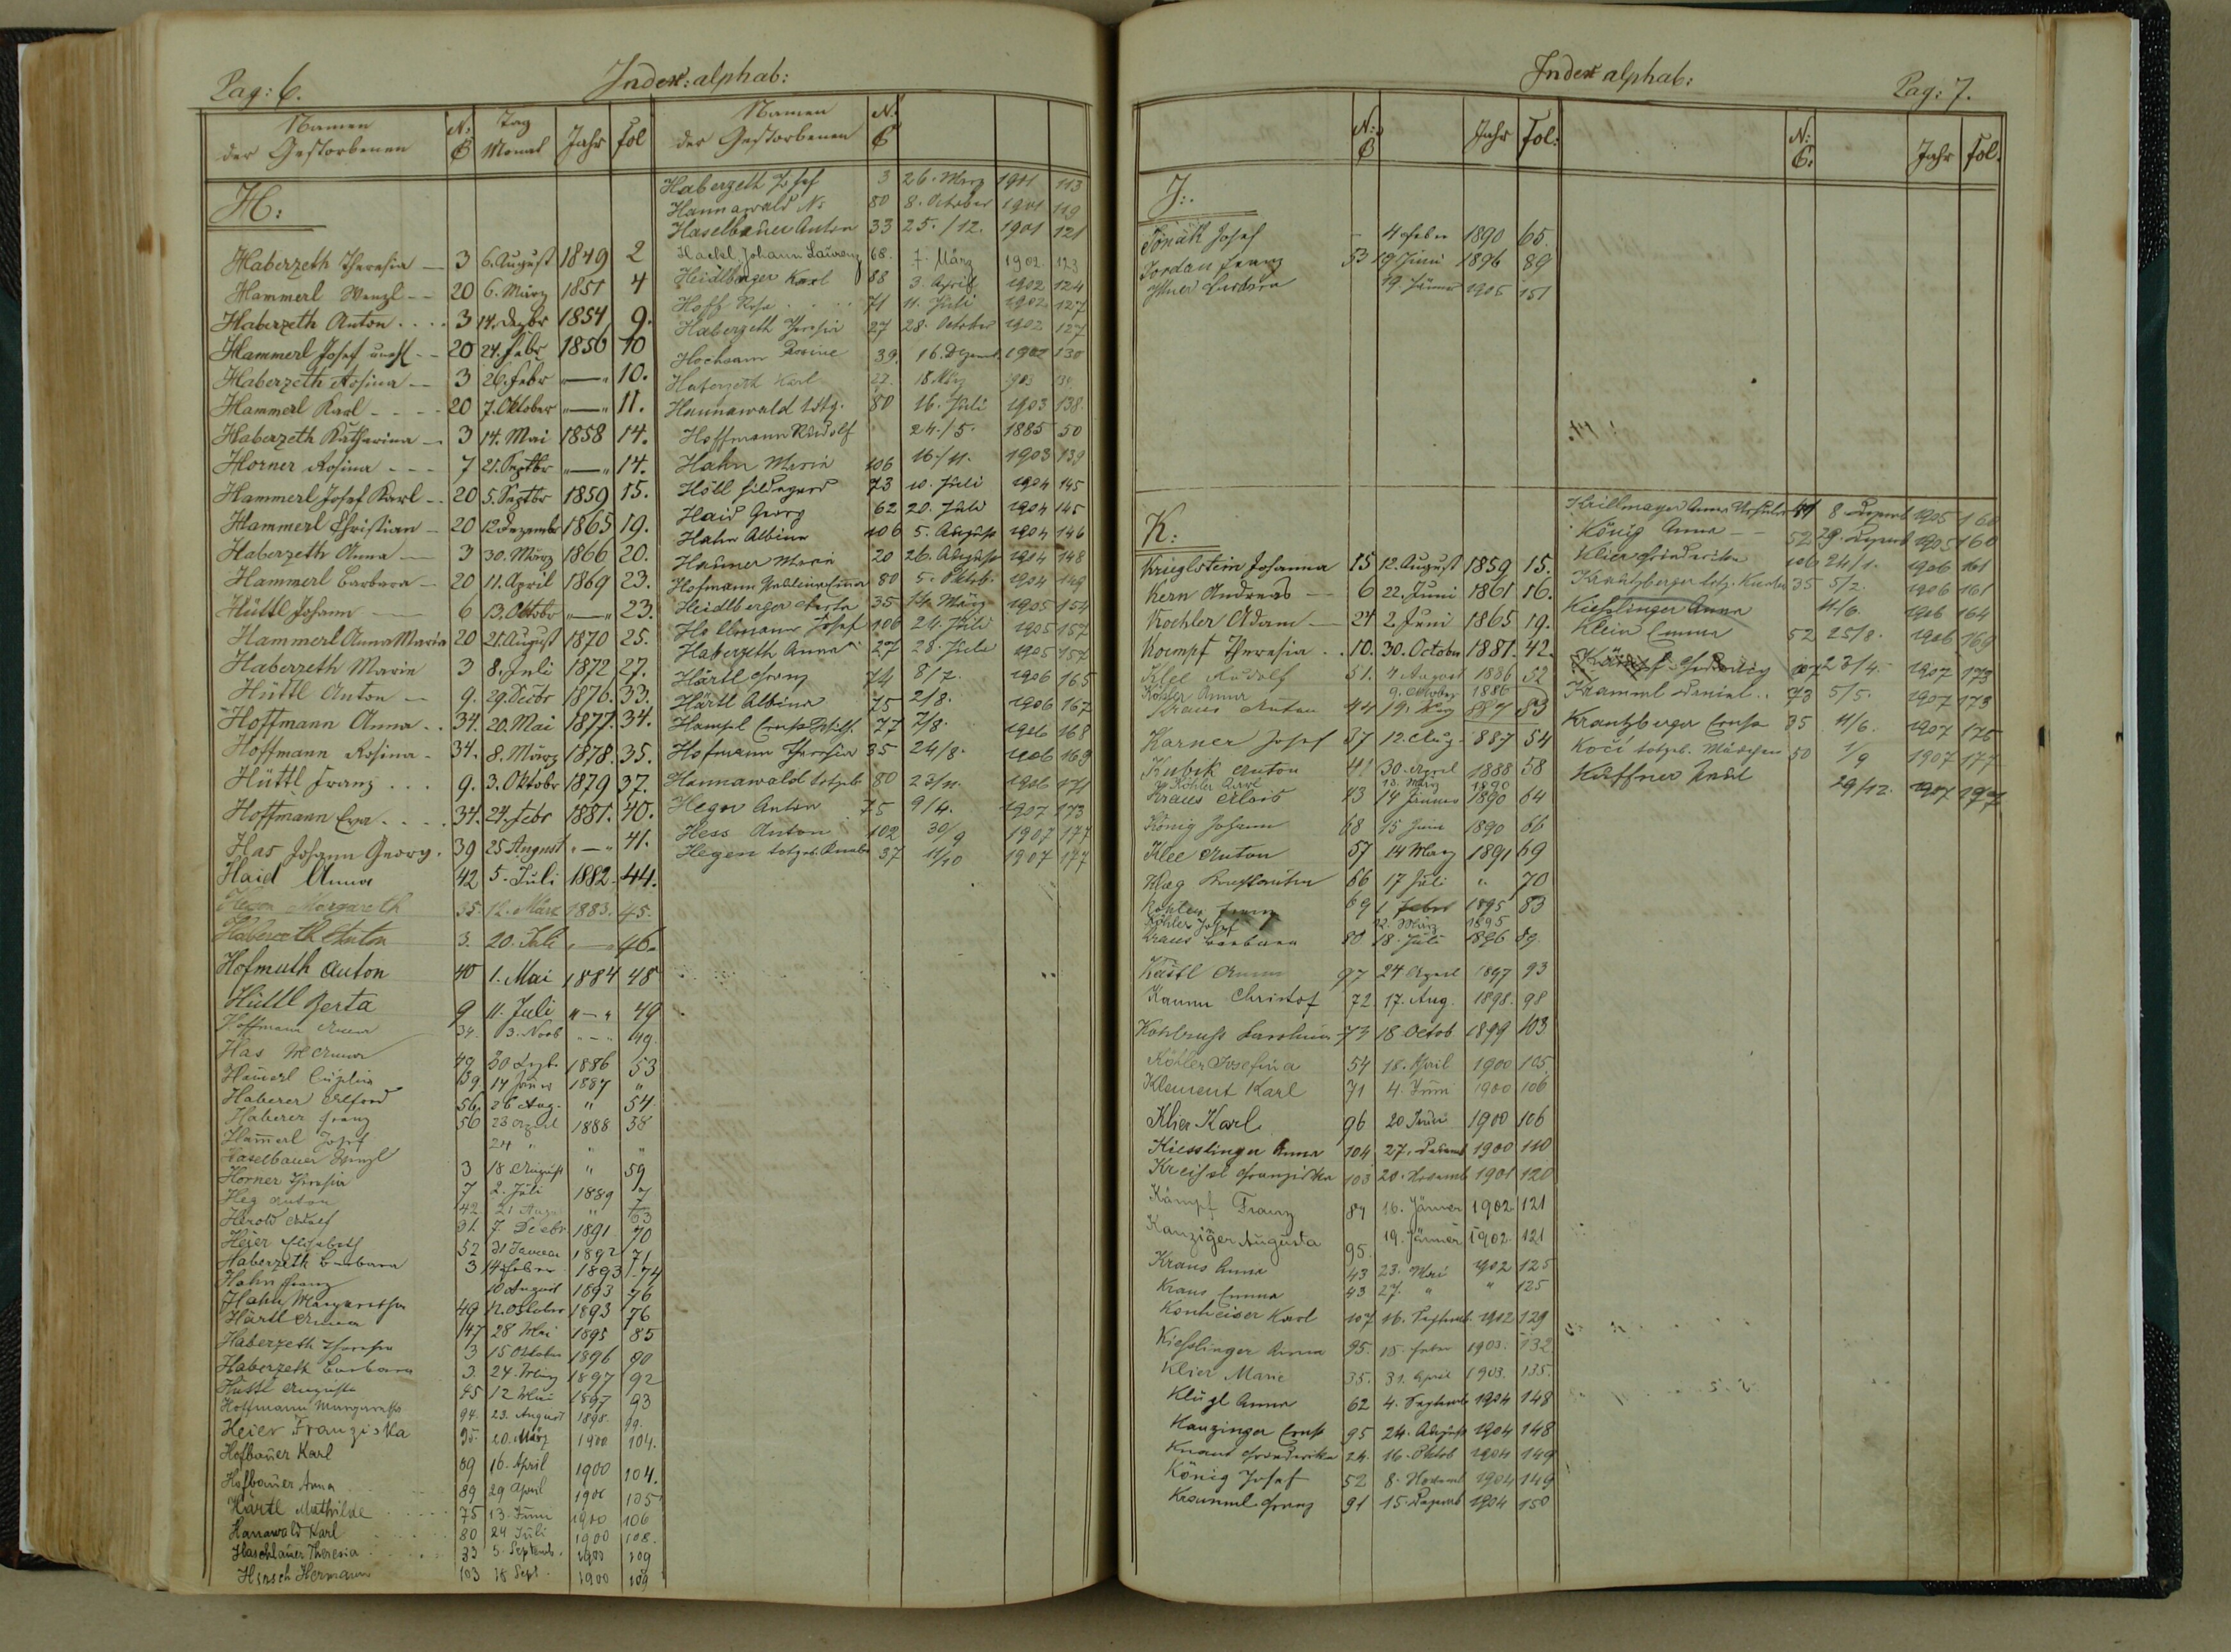 Pag: 6.
Index: alphab:
Namen der Gestorbenen
N: C
Tag Monat
Jahr
Fol
Namen der Gestorbenen
N. C
H:
Haberzeth Theresia 3 6. August 1849 2
Hammerl Wenzl 20 6. März 1851 4
Haberzeth Anton 3 14. Dezbr 1854 9.
Hammerl Josef 20 24. Febr 1856 10
Haberzeth Rosina 3 26. Febr "—" 10.
Hammerl Karl 20 7. Oktober "—" 11.
Haberzeth Katharina 3 14. Mai 1858 14.
Horner Rosina 7 21. Septbr "—" 14.
Hammerl Josef Karl 20 5. Septbr 1859 15.
Hammerl Christian 20 12. Dezembr 1865 19.
Haberzeth Anna 3 30. März 1866 20.
Hammerl Barbara 20 11. April 1869 23.
Hüttl Johann 6 13. Oktobr "—" 23.
Hammerl Anna Maria 20 21. August 1870 25.
Haberzeth Maria 3 8. Juli 1872 27.
Hüttl Anton 9. 29. Decbr 1876. 33.
Hoffmann Anna 34. 20. Mai 1877. 34.
Hoffmann Rosina 34. 8. März 1878. 35.
Hüttl Franz 9. 3. Oktobr 1879 37.
Hoffmann Eva 34. 24. Febr 1881. 40.
Has Johann Georg. 39 25 August "—" 41.
Haid Anna 42 5. Juli 1882. 44.
Heger Margareth 35. 12. März 1883. 45.
Haberzeth Anton 3. 20. Juli "—" 46.
Hofmuth Anton 40 1. Mai 1884 48
Hüttl Berta 9 11. Juli "—" 49
Hoffmann 34. 3. Novb "—" 49.
Has 49 30 1886 53
Hammerl 39 14 Jänner 1887 "
Haberer Alfred 56. 26 Aug. " 54
Haberer Franz 56 23 April 1888 58
Hammerl Josef 24 " " "
Haselbauer Wenzl 3 18 August " 59
Horner Theresia 7 2. Juli 1889
Heg Anton 42 21 Augu " 63
Herold Adolf 91. 7. Decbr 1891 70
Heier Elisabeth 52 31 Januar 1892 71
Haberzeth Barbara 3 14 Feber 1893 74
Hahn Franz 10 August 1893 76
Hahn Margaretha 49 12 Oktober 1893 76
Härtl Anna 47 28 Mai 1895 85
Haberzeth Theresia 3 15 Oktober 1896 90
Haberzeth Barbara 3. 24. März 1897 92
Hüttl Augusta 95 12 Mai 1897 93
Hoffmann Margaretha 94. 23. August 1898. 99.
Heier Franziska 95. 20. März 1900 104.
Hofbauer Karl 89 16. April 1900 104.
Hofbauer Anna 89 29 April 1900 105
Härtl Mathilde 75 13. Juni 1900 106
Hanawald Karl 80 24 Juli 1900 108.
Haschlauer Theresia 33 5. Septemb. 1900 109
Hirsch Hermann 103 18 Sept. 1900 109
Haberzeth Josef 3 26. März 1901 113
Hannawald Ns 80 8. October 1901 119
Haselbauer Anton 33 25./12. 1901 121
Hackl Johann Laurenz 68. 7. März 1902. 123
Heidlberger Karl 88 3. April 1902 124
Hoff Rosa 71 11. Juli 1902 127
Haberzeth Theresia 27 28. October 1902 127
Hochsam Rosine 39. 16. Dezemb. 1902 130
Haberzeth Karl 27. 18 März 1903
Hannawald totg. 80 16. Juli 1903 138.
Hoffmann Rudolf 24./5. 1885 50
Hahn Maria 106 16./11. 1903 139
Höll Hildegard 73 10. Juli 1904 145
Haid Georg 62 20. Juli 1904 145
Hahn Albine 106 5. August 1904 146
Hauner Maria 20 26. August 1904 148
Hofmann 80 5. Oktob. 1904 149
Heidlberger Berta 35 14. März 1905 154
Hollmann Josef 106 24. Juli 1905 157
Haberzeth Anna 27 28. Juli 1905 157
Härtl Franz 74 8/7. 1906 165
Härtl Albine 75 2/8. 1906 167
Hampl 77 7/8. 1906 168
Hofmann Theresia 35 24/8. 1906 169
Hannawald totgeb. 80 23/11. 1906 171
Heger Anton 75 9/4. 1907 173
Hess Anton 102 30/9 1907 177
Hegen totgeb. Knabe 37 11/10 1907 177
Index alphab:
Pag: 7.
N: C
Jahr
Fol:
N: C:
Jahr
Fol.
J:.
Josef 4 Feber 1890 65.
Jordan Franz 53 19 Juni 1896 89
19. Jänner 1905 151
K:
Krieglstein Johanna 15 12. August 1859 15.
Kern Andreas 6 22. Juni 1861 16.
Kochler Adam 24 2. Juni 1865 19.
Kaempf Theresia 10. 30. October 1881. 42.
Klee Rudolf 51. 4 August 1886 52
Köhler Anna 9. October 1886
Kraus Anton 44 19. 53
Karner Josef 37 12. Aug. 887 54
Kubik Anton 41 30. April 1888 58
Köhler 13. März 1890
Kraus Alois 43 14 Jänner 1890 64
König Johann 68 15 Juni 1890 66
Klee Anton 57 14 März 1891 69
66 17 Juli " 70
Köhler Franz 69 1. Feber 1895 83
Köhler Josef 12. März 1895
Kraus Barbara 80 18. Juli 1896 89.
Kastl Anna 97 24 April 1897 93
Kaunn Christof 72 17. Aug. 1898. 98
Karolina 73 18 Octob 1899 103
Köhler Josefina 54 18. April 1900 105.
Klement Karl 71 4. Juni 1900 106
Klier Karl 96 20 Juni 1900 106
Kiesslinger Anna 104 27. Dezemb 1900 110
Kreisel Franziska 103 20. Novemb 1901 120
Kämpf Franz 87 16. Jänner 1902 121
Kanziger Augusta 95. 19. Jänner 1902. 121
Kraus Anna 43 23. Mai 1902 125
Kraus Emma 43 27. " " 125
Konheiser Karl 107 16. Septemb. 1902 129
Kiesslinger Anna 95. 15. Feber 1903. 132
Klier Marie 35. 31. April 1903. 135.
Klügl Anna 62 4. Septemb 1904 148
Kanzinger Ernst 95 24. August 1904 148
Knaut Friederika 24. 16. Oktob 1904 149
König Josef 52 8. Novemb 1904 149
Kramml Franz 91 15. Dezemb 1904 150
Krillmayer Anna 41 8 Dezemb 1905 160
König Anna 52 29. Dezemb 1905 160
Klier Friederika 106 24/1. 1906 161
Krantzberger totg. Knabe 35 5/2. 1906 161
Kiesslinger Anna 4/6. 1906 164
Klein Emma 52 25/8. 1906 169
Kämpf 107 23/4. 1907 173
Kramml Daniel 73 5/5. 1907 173
Krantzberger Ernst 35 11/6. 1907 175
Kočí totgeb. Mädchen 50 1/9 1907 177
Kaffner 29/12. 1907 177